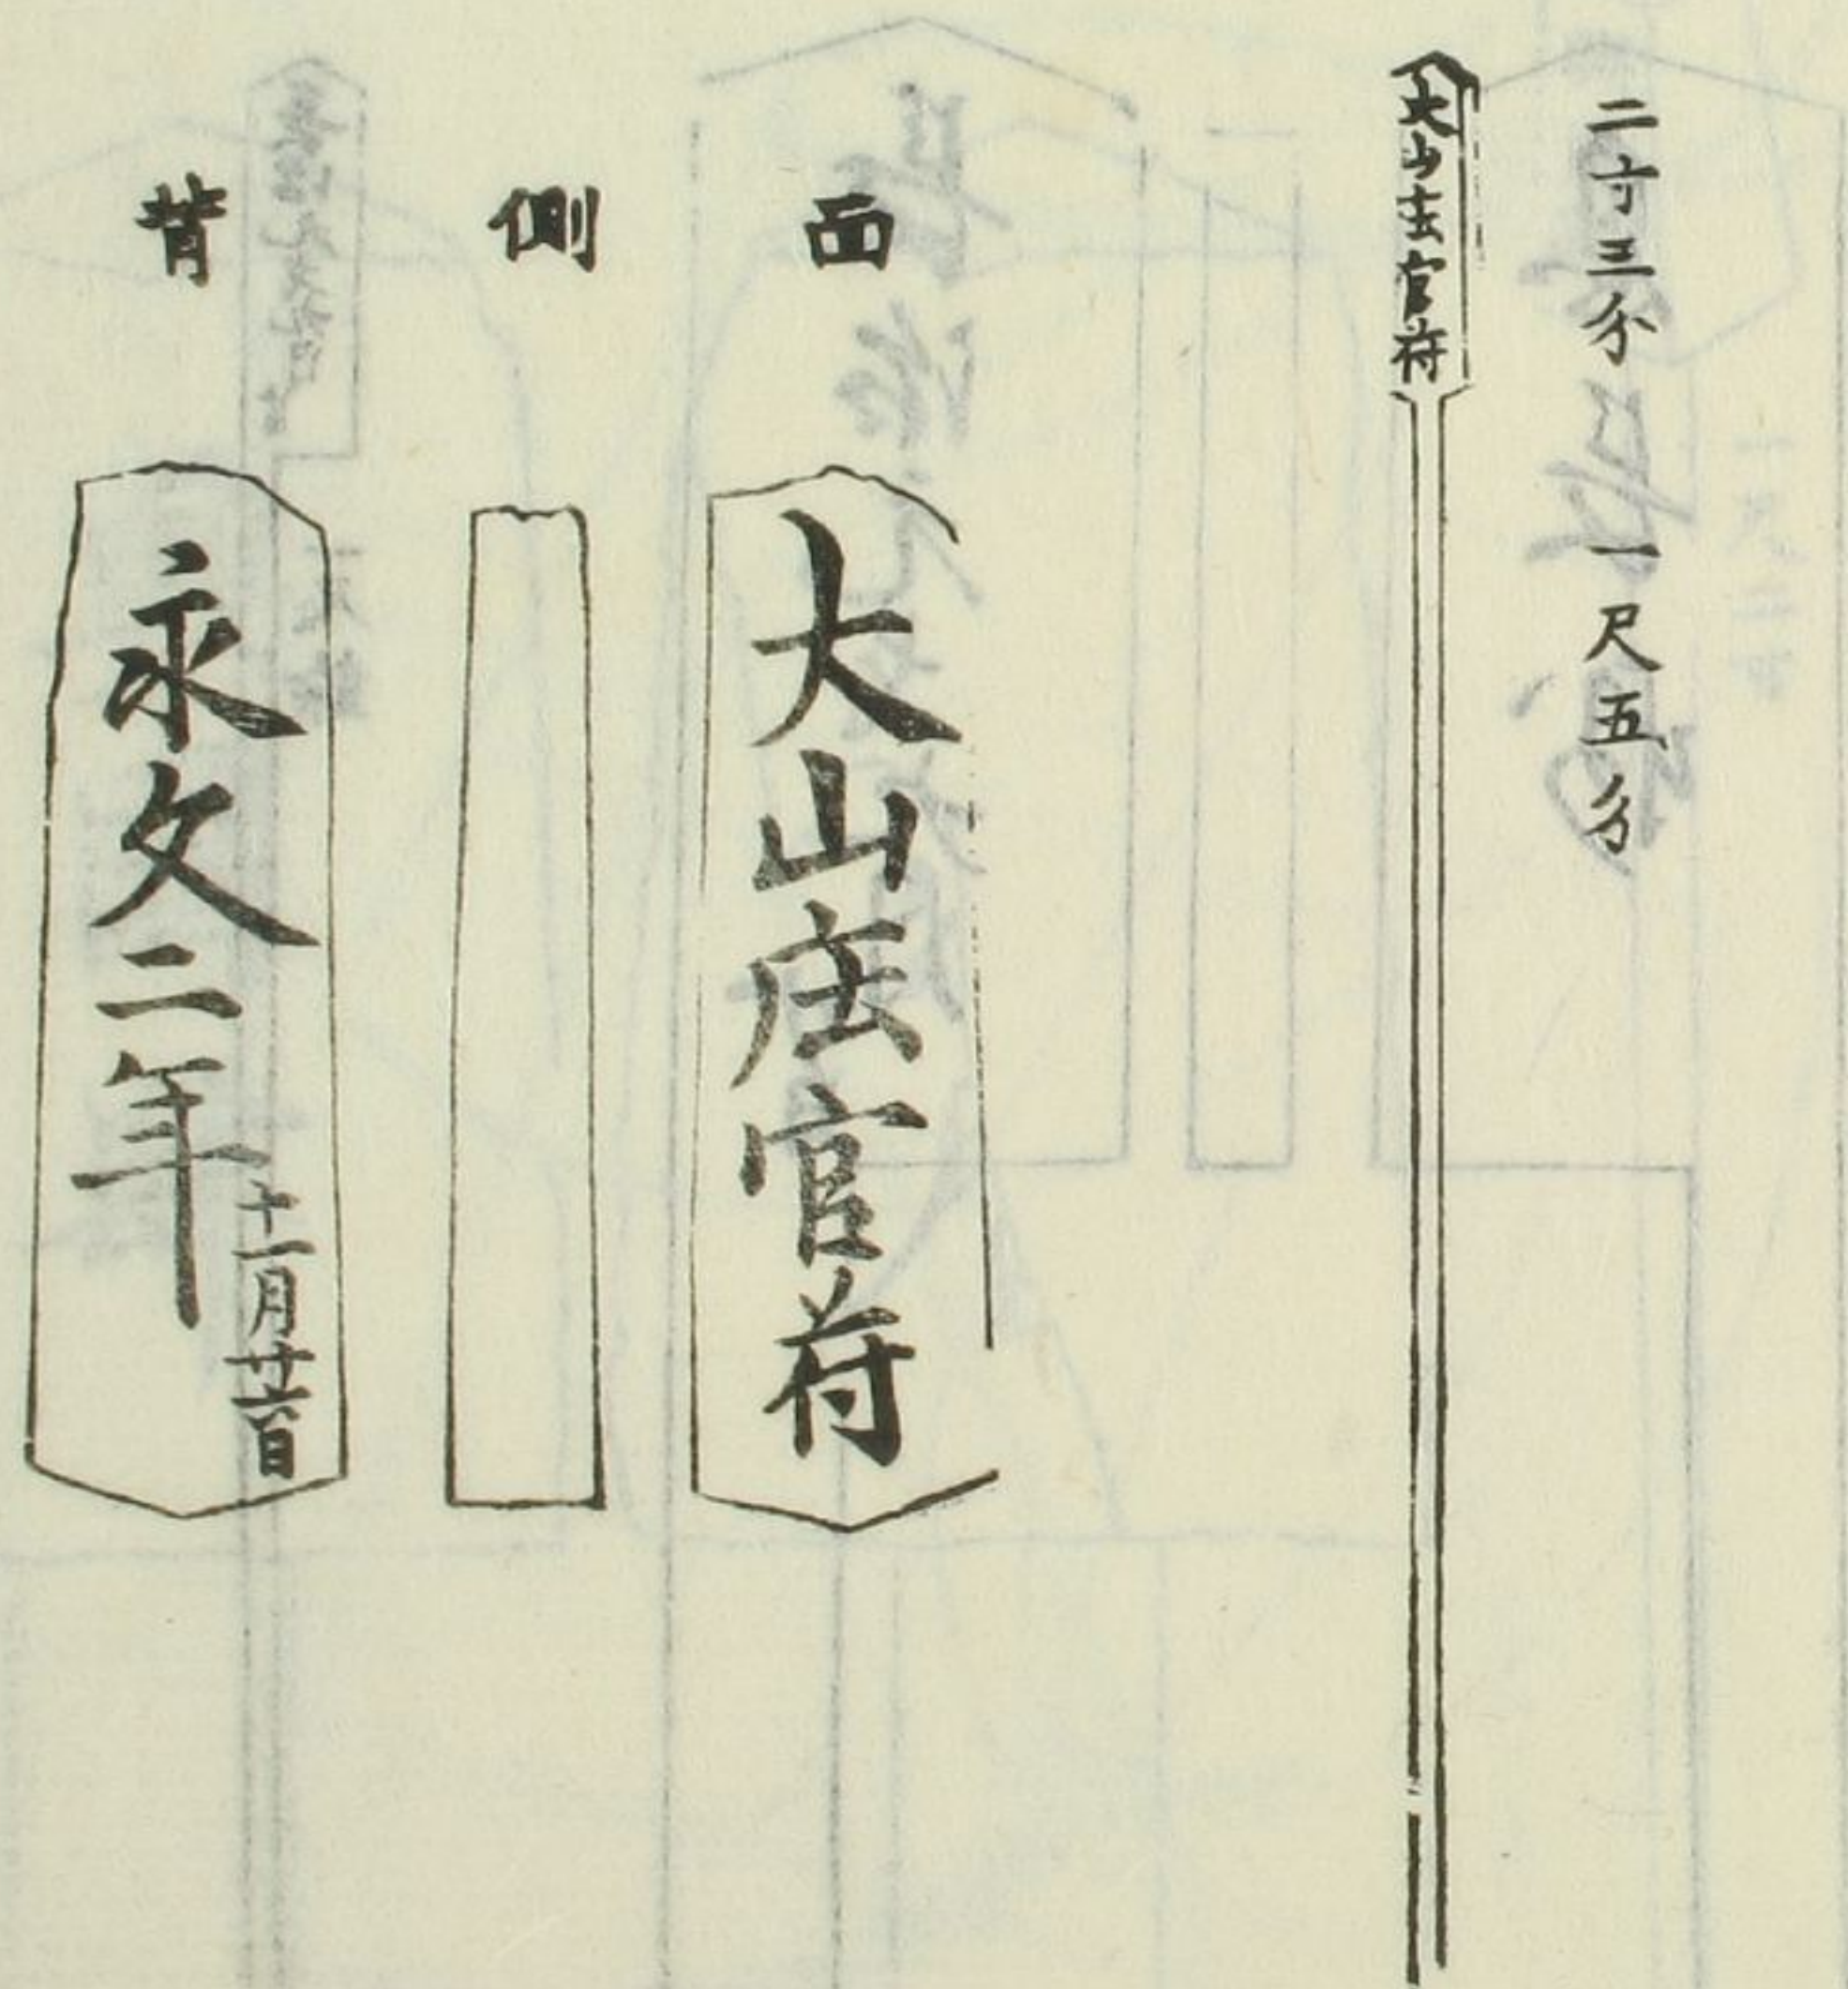 二寸三分 一尺五分
大山庄官符
面
大山庄官符
側
背
永久二年
十一月廿六日